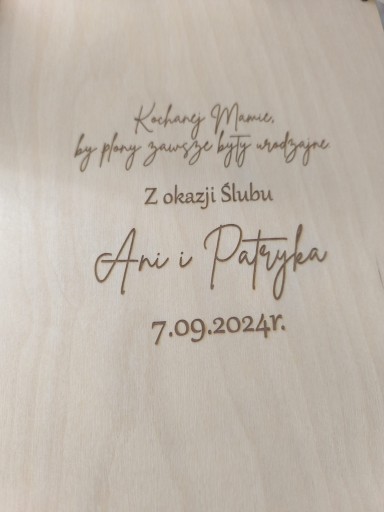 Kochanej Mamie,
by plony zawsze były urodzajne
Z okazji Ślubu
Ani i Patryka
7.09.2024r.